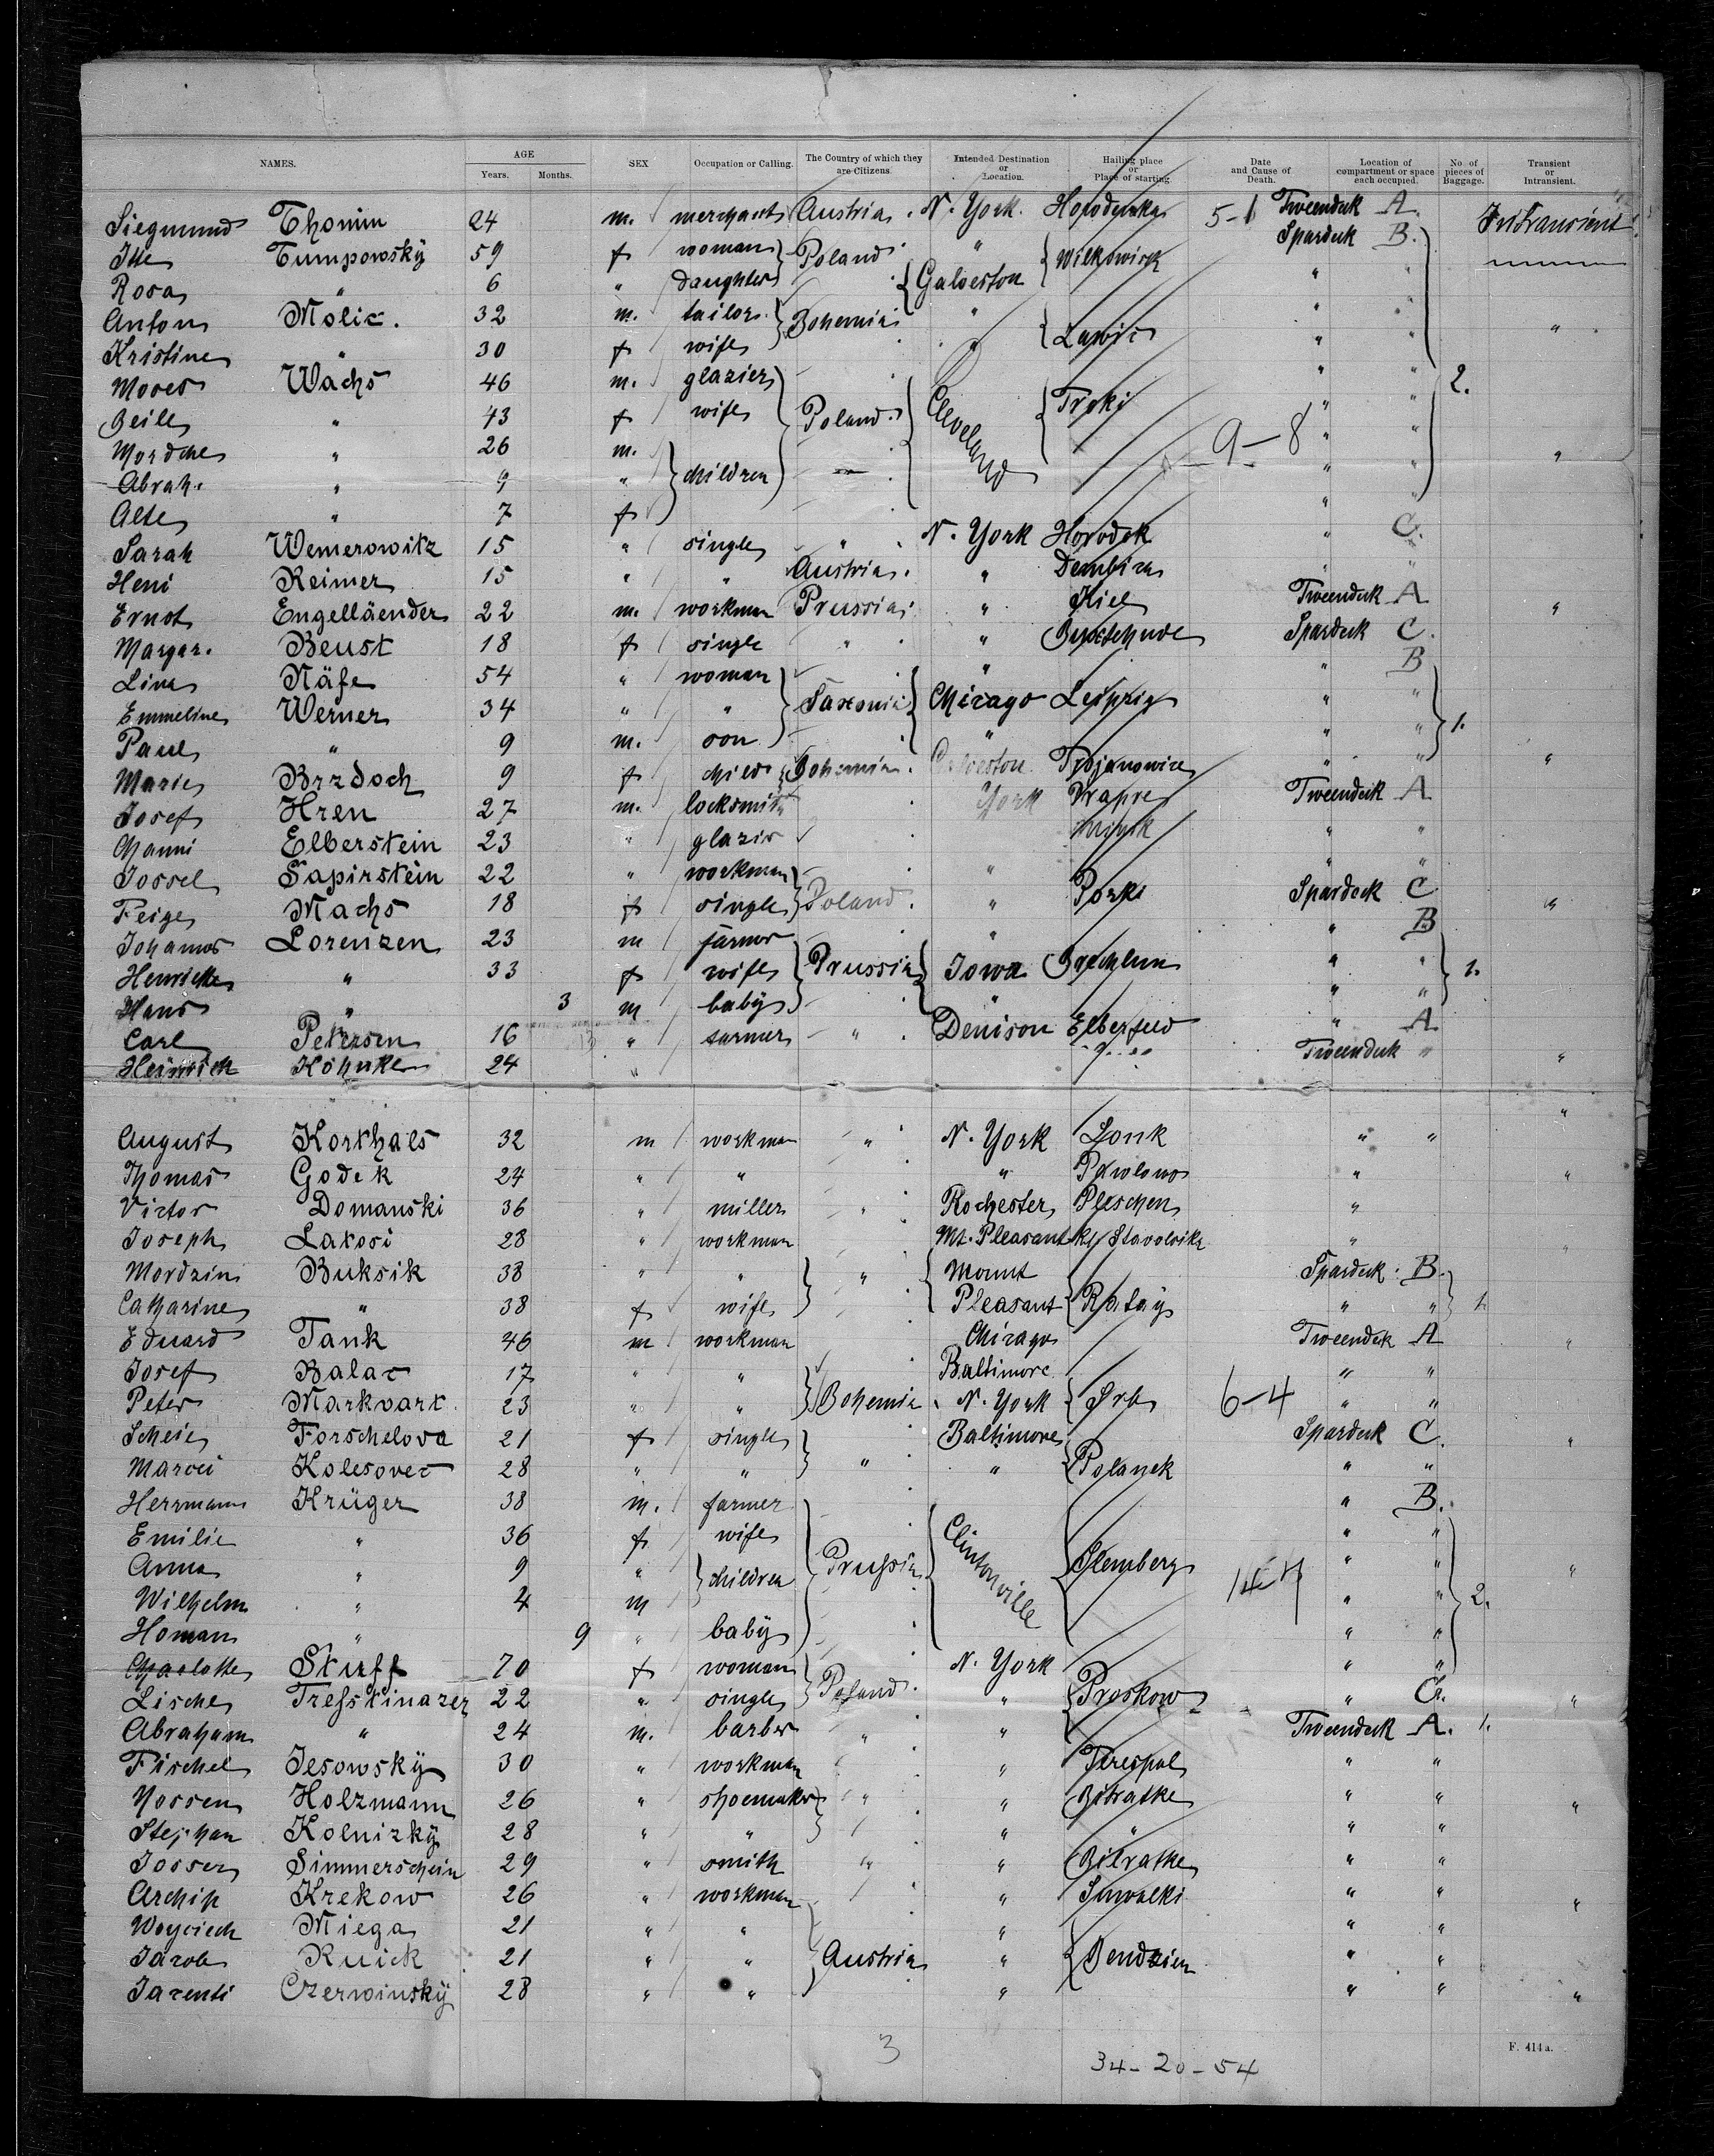 NAMES. AGE Years. Months. SEX Occupation or Calling. The Country of which they are Citizens. Intended Destination or Location. Hailing place or Place of starting. Date and Cause of Death. Location of compartment or space each occupied. No. of pieces of Baggage. Transient or Intransient.
Siegmund Thonim 24 m. merchant Austria. N. York. Horodenka 5-1 Tweendeck A. InTransient
Itte Tumpowsky 59 f woman Poland " Wilkowisk Spardeck B.
Rosa " 6 " daughter Galveston " "
Anton Molic. 32 m. tailor Bohemia " " " "
Kristine " 30 f wife " " "
Moses Wachs 46 m. glazier Poland. Cleveland Troki " " 2.
Beile " 43 f wife " "
Mordche " 26 m. 9-8 " " "
Abrah. " 9 " children " "
Alte " 7 f " "
Sarah Wemerowitz 15 " single " N. York Horodok " C.
Heni Reimer 15 " " Austria. " Dembiza " "
Ernst Engelläender 22 m. workman Prussia " Kiel Tweendeck A "
Margar. Beust 18 f single " " Buxtehude Spardeck C.
Lina Näfe 54 " woman Saxonia " " B
Emmeline Werner 34 " " Chicago Leipzig " "
Paul " 9 m. son " " " 1.
Marie Brzdoch 9 f child Bohemia. Galveston Trojanowice " " "
Josef Hren 27 m. locksmith York Tweendeck A
Channi Elberstein 23 " glazier " "
Jossel Sapirstein 22 " workman Poland. " " "
Feige Machs 18 f single " Porki Spardeck C "
Johannes Lorenzen 23 m farmer Prussia " " B
Henriette " 33 f wife Iowa " " 1.
Hans " 3 m baby " " "
Carl Petersen 16 " farmer " Denison Elberfeld " A
Heinrich Höhnke 24 " Tweendeck " "
August Korthals 32 m workman " N. York Lonk " "
Thomas Godek 24 " " " Pawlowo " "
Victor Domanski 36 " miller " Rochester Pleschen "
Joseph Laxosi 28 " workman Mt. Pleasant "
Mordzin Buksik 38 " " " Mount Spardeck B.
Catharine " 38 f wife Pleasant Ratay " " 1.
Eduard Tank 46 m workman Chicago Tweendek A "
Josef Balac 17 " " Bohemia Baltimore " "
Peter Markvart 23 " " N. York Srb 6-4 " "
Forschelova 21 f single " Baltimore Spardeck C. "
Marci Kolesovec 28 " " " Polanek " "
Herrmann Krüger 38 m. farmer Prussia Clintonville Slemberg " B.
Emilie " 36 f wife " "
Anna " 9 " children " " "
Wilhelm " 4 m " " 2.
Homan " 9 " baby " "
Charlotte Skurff 70 f woman Poland. N. York " "
Lische Tresstinazer 22 " single " Proskow " C. "
Abraham " 24 m. barber " " Tweendeck A. 1.
Fischel Jesowsky 30 " workman " Terespol " "
Nossen Holzmann 26 " shoemaker " " Bitratke " " "
Stephan Kolnizky 28 " " " " " "
Josser Simmerschein 29 " smith " " Bitratke " "
Archip Krekow 26 " workman " Suwalki " " "
Woyciech Miega 21 " " Austria " Bendzien " "
Jacob Kuick 21 " " " " "
Jazenti Czerwinsky 28 " " " " " "
3
34-20-54
F. 414 a.